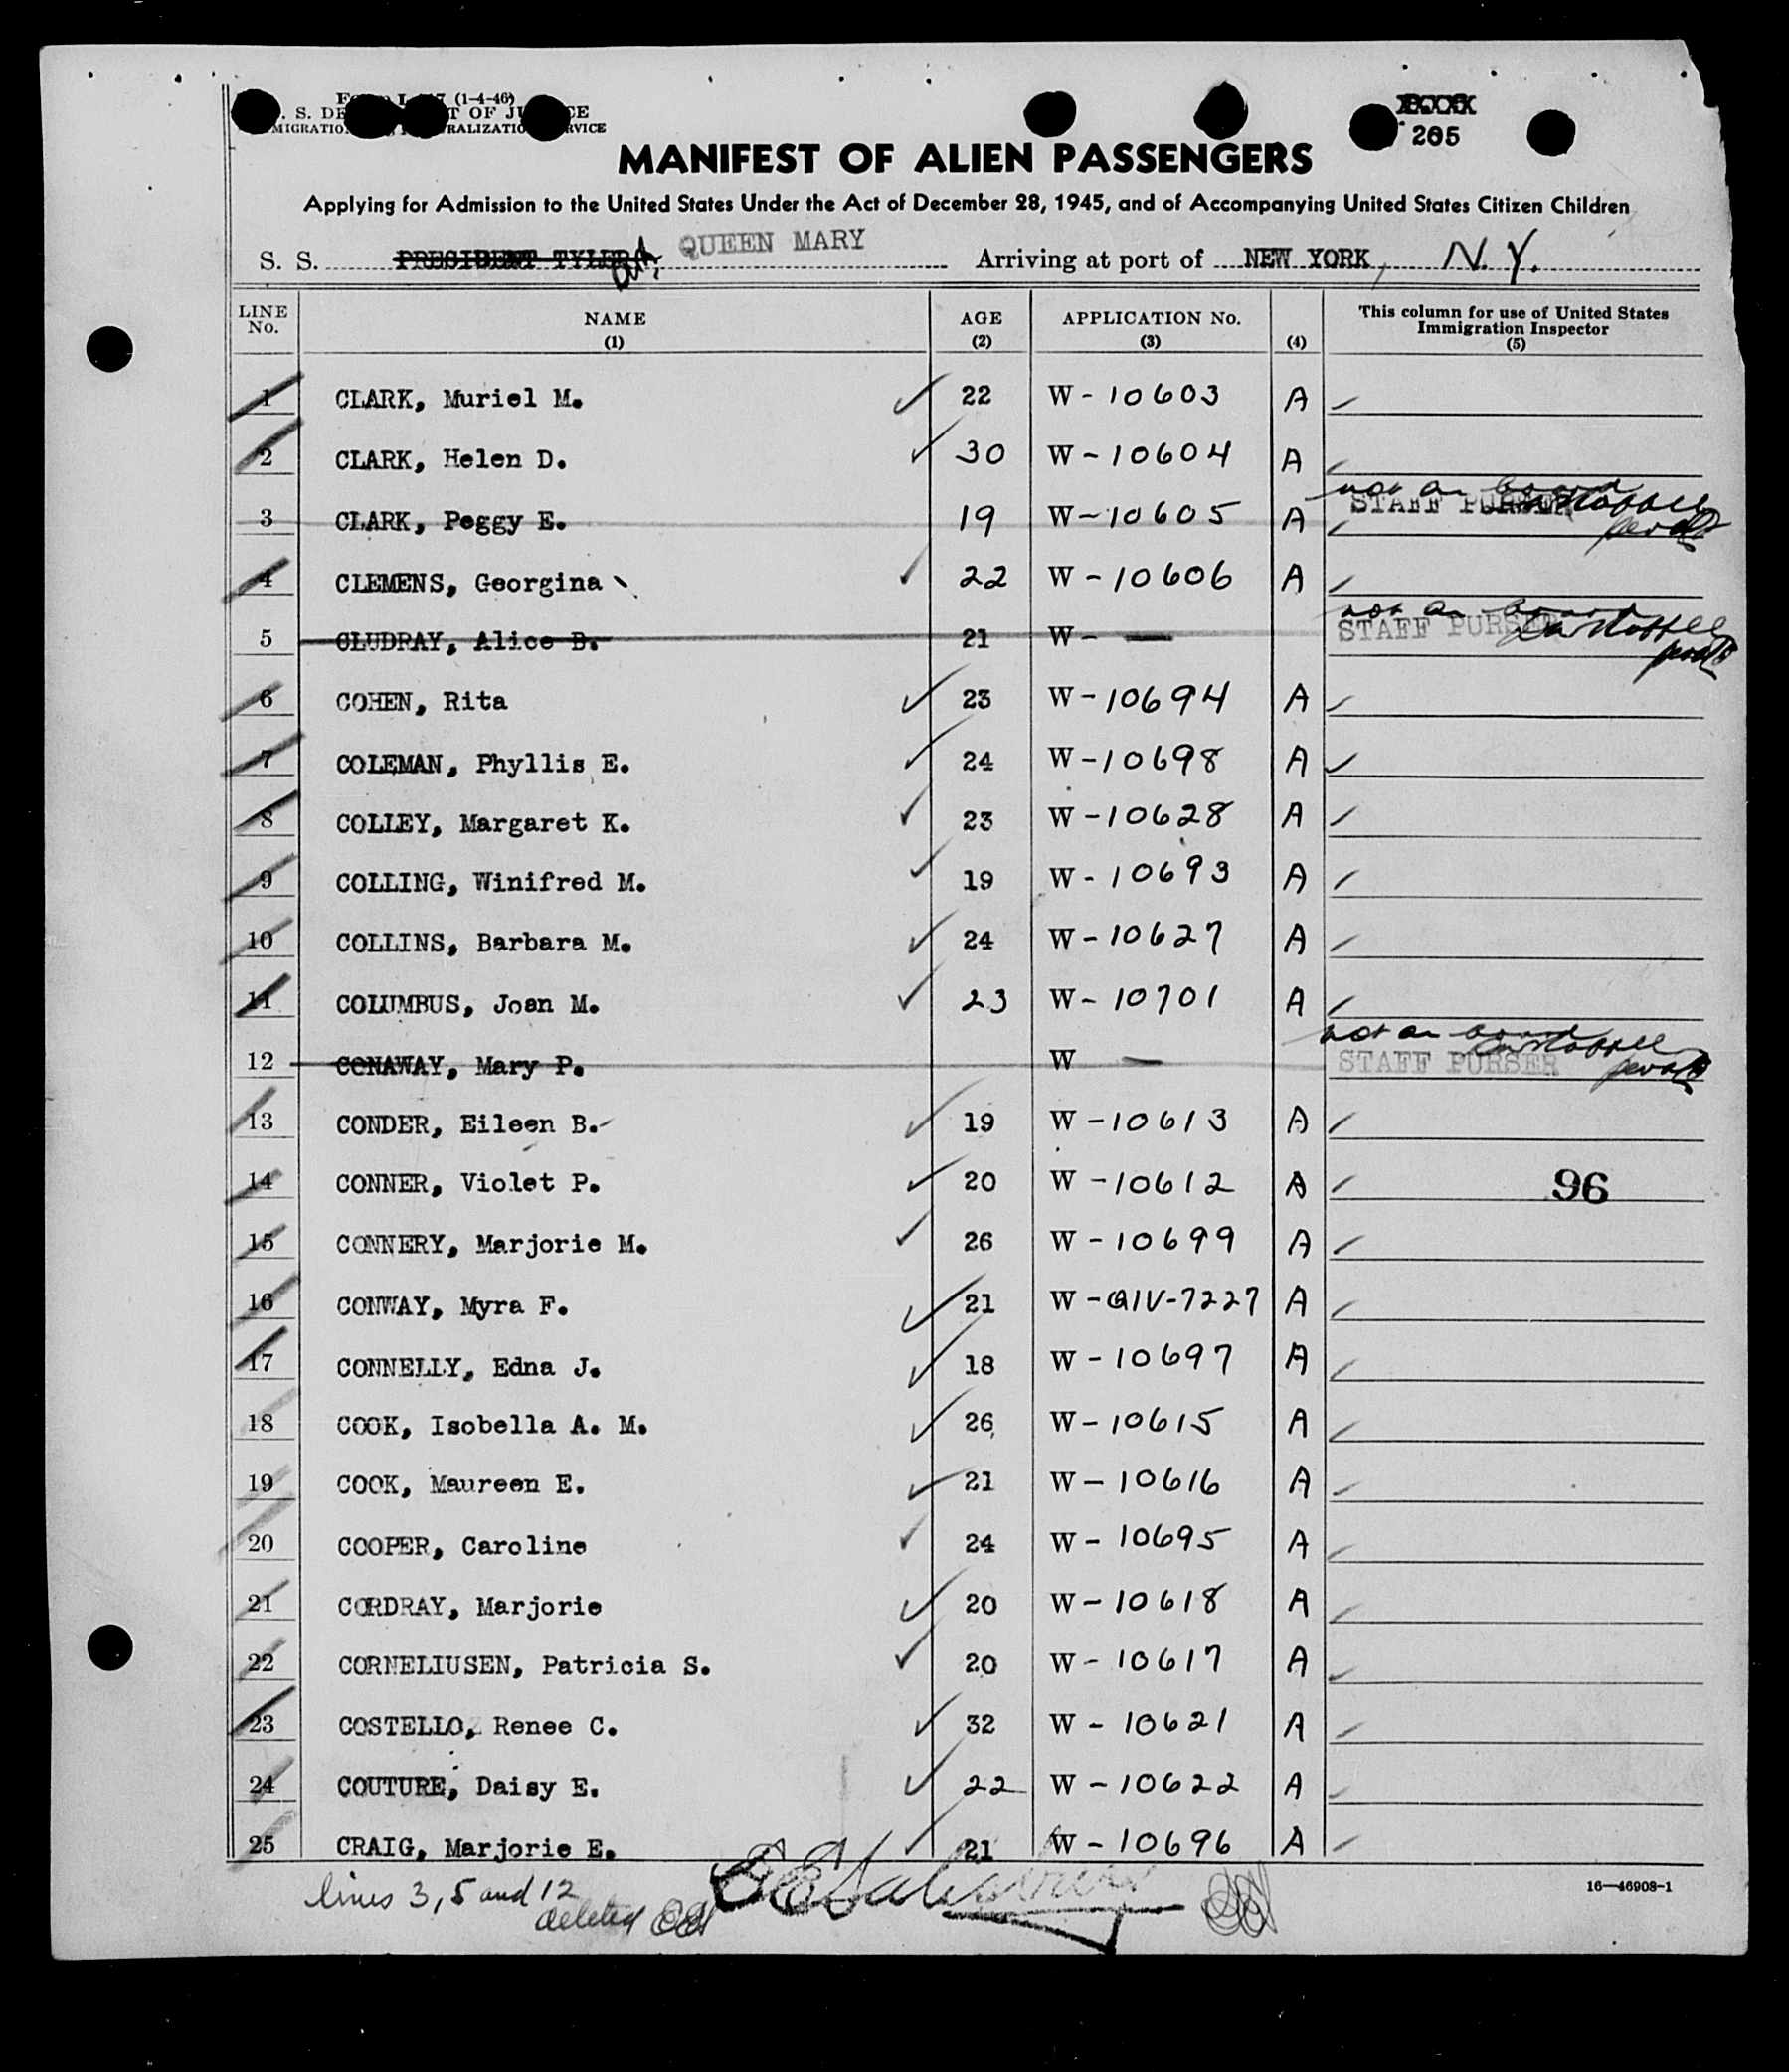 (1-4-46)
MANIFEST OF ALIEN PASSENGERS
Applying for Admission to the United States Under the Act of December 28, 1945, and of Accompanying United States Citizen Children
S. S. PRESIDENT TYLER QUEEN MARY Arriving at port of NEW YORK, N.Y.
LINE No. NAME (1) AGE (2) APPLICATION No. (3) (4) This column for use of United States Immigration Inspector (5)
1 CLARK, Muriel M. 22 W-10603 A
2 CLARK, Helen D. 30 W-10604 A
not on board
3 CLARK, Peggy E. 19 W-10605 A STAFF PURSER
4 CLEMENS, Georgina 22 W-10606 A
not on board
5 CLUDRAY, Alice B. 21 W- — STAFF PURSER
6 COHEN, Rita 23 W-10694 A
7 COLEMAN, Phyllis E. 24 W-10698 A
8 COLLEY, Margaret K. 23 W-10628 A
9 COLLING, Winifred M. 19 W-10693 A
10 COLLINS, Barbara M. 24 W-10627 A
11 COLUMBUS, Joan M. 23 W-10701 A
not on board
12 CONAWAY, Mary P. W — STAFF PURSER
13 CONDER, Eileen B. 19 W-10613 A
14 CONNER, Violet P. 20 W-10612 A 96
15 CONNERY, Marjorie M. 26 W-10699 A
16 CONWAY, Myra F. 21 W-QIV-7227 A
17 CONNELLY, Edna J. 18 W-10697 A
18 COOK, Isobella A. M. 26 W-10615 A
19 COOK, Maureen E. 21 W-10616 A
20 COOPER, Caroline 24 W-10695 A
21 CORDRAY, Marjorie 20 W-10618 A
22 CORNELIUSEN, Patricia S. 20 W-10617 A
23 COSTELLO, Renee C. 32 W-10621 A
24 COUTURE, Daisy E. 22 W-10622 A
25 CRAIG, Marjorie E. 21 W-10696 A
lines 3, 5 and 12
deleted
16—46908-1